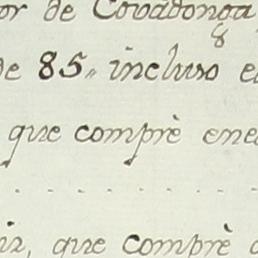 or de Covadonga
8
de 85,, incluso e
que comprè ene
que comprè